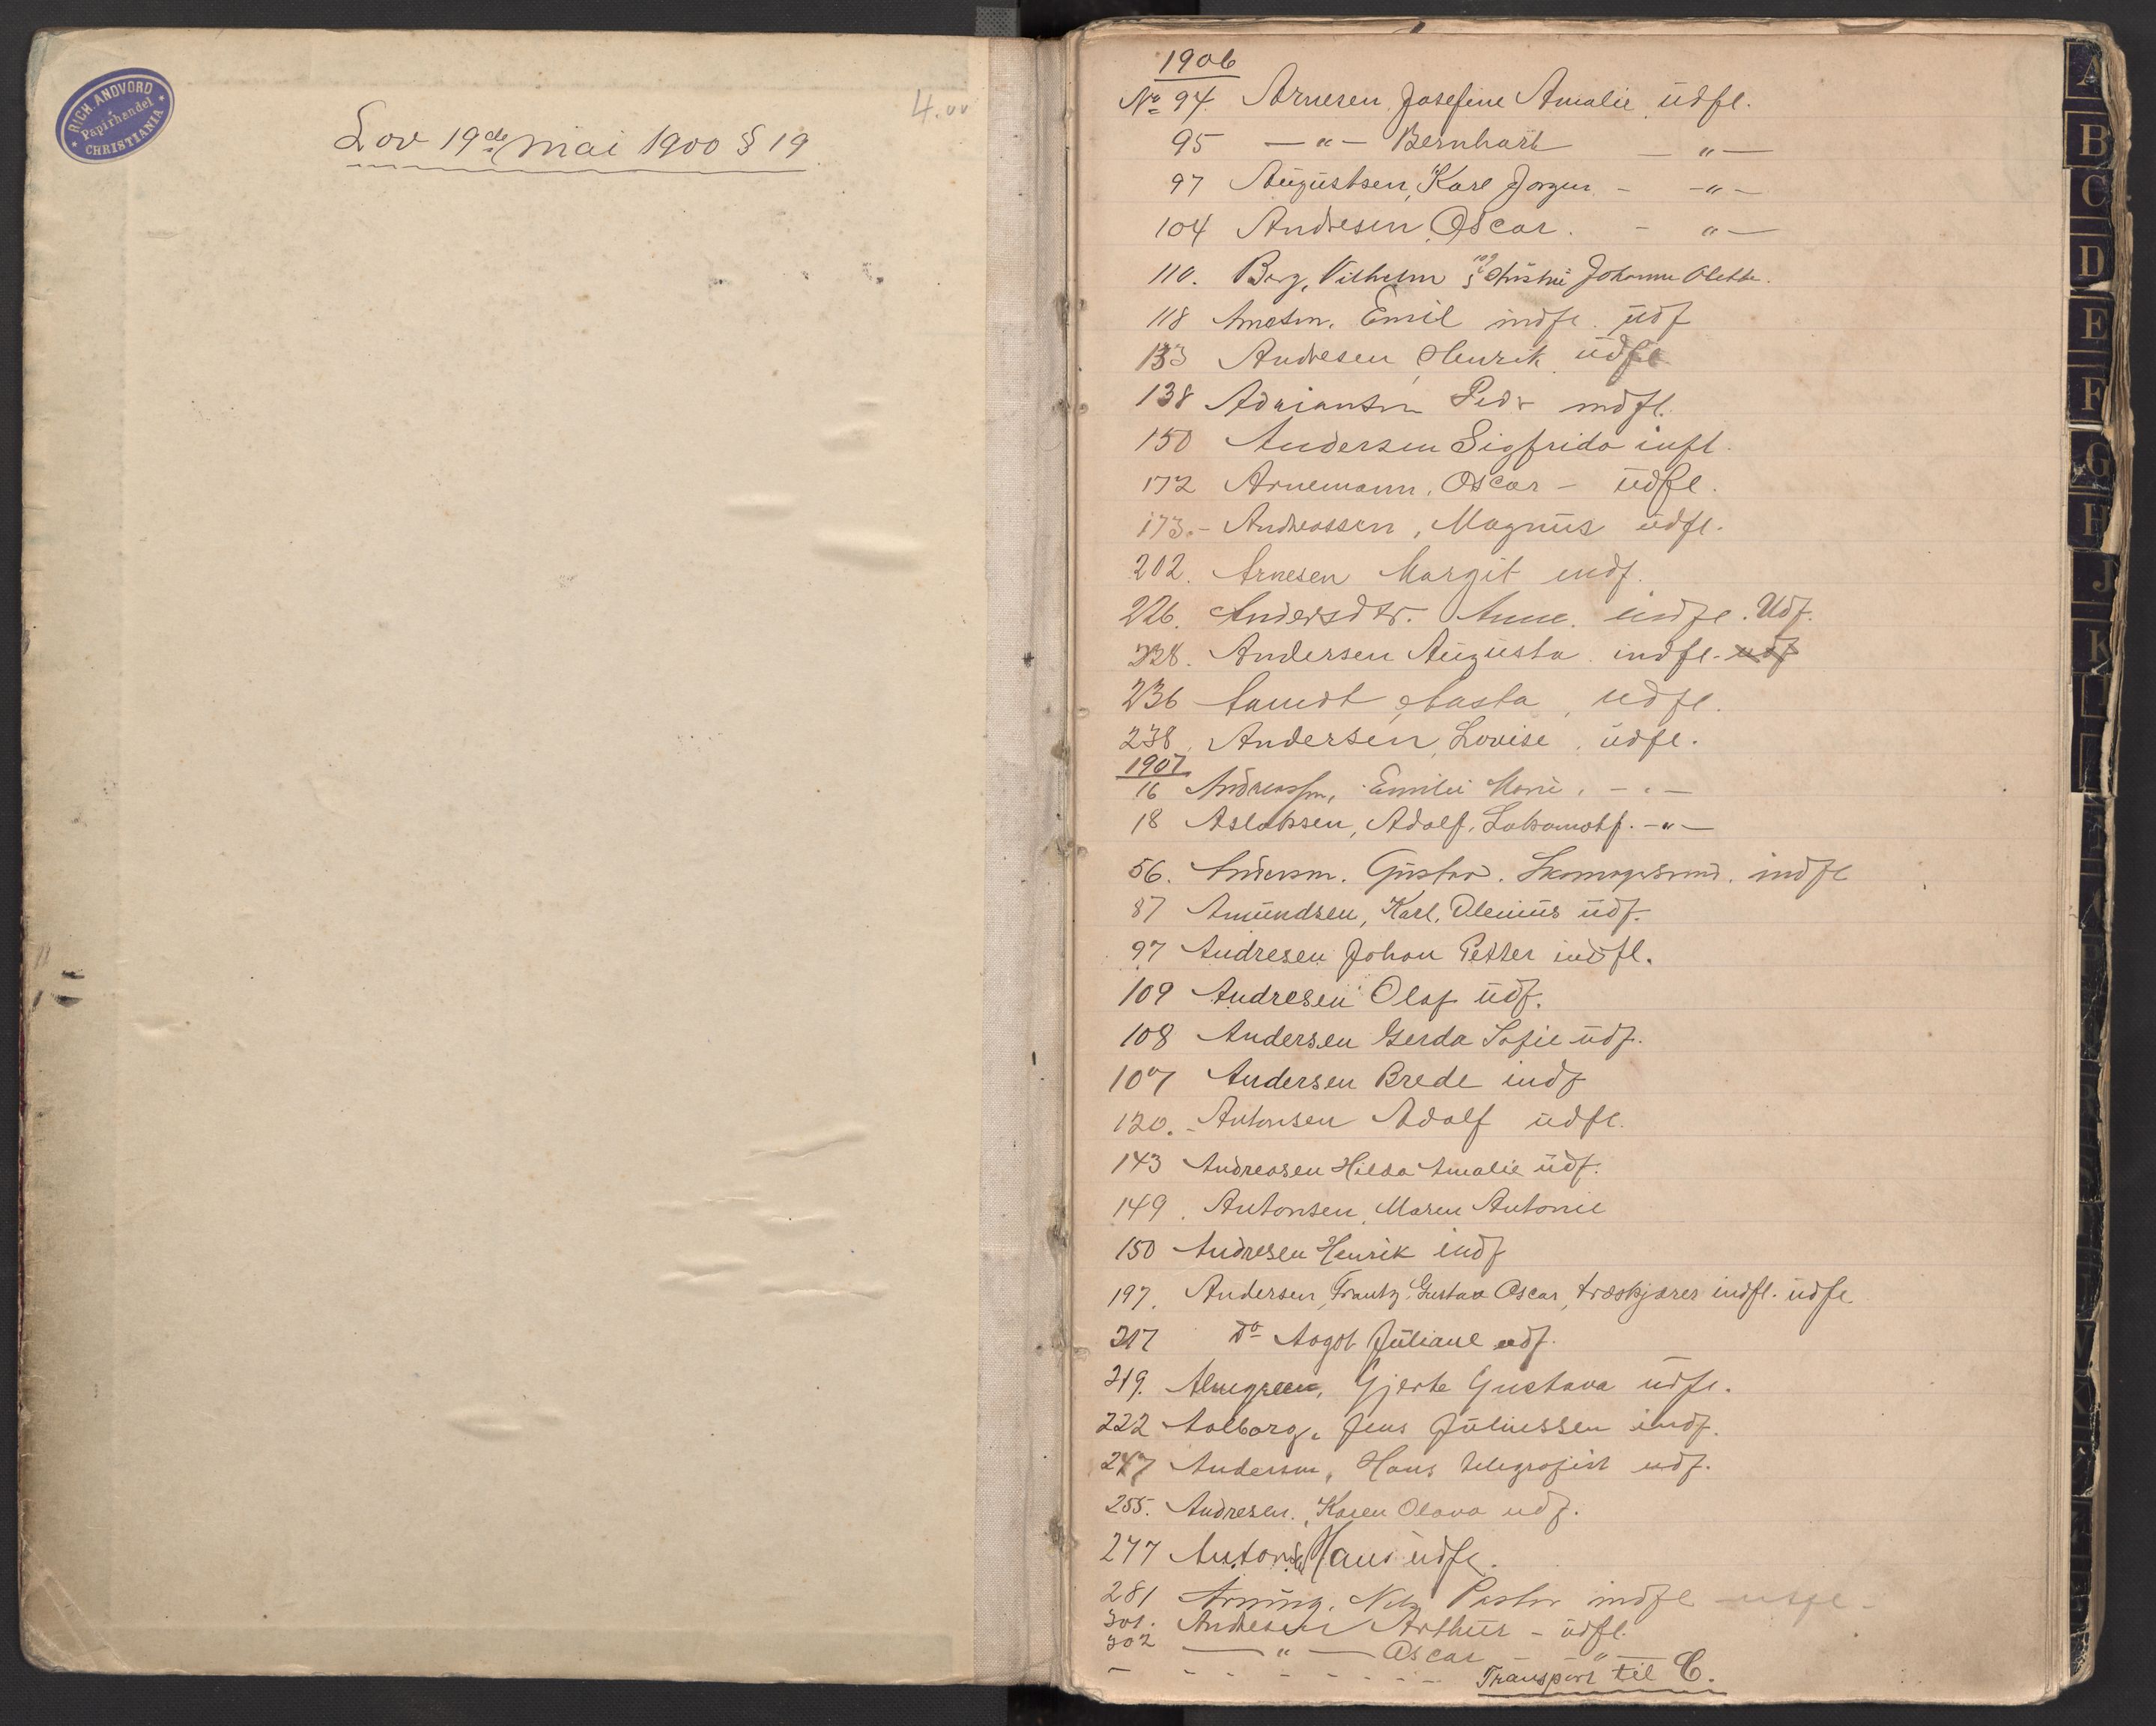 RICH. ANDVORD
Papirhandel
CHRISTIANIA
4.00
Lov 19de mai 1900 § 19.
1906
No 94. Arnesen, Josefine Amalie, udfl.
95 — " — Bernhard — " —
97 Augustsen, Karl Jørgen. - - " -
104 Andresen, Oscar. - " —
110. Berg, Vilhelm Johanne Olette.
118 Emil indfl. udf
133 Andresen, Henrik, udfl
138 Adriansen Peder indfl.
150 Andersen Sigfrida infl.
172 Arnemann, Oscar - udfl.
173.- Andreassen, Magnus udfl.
202. Arnesen Margit indf.
226. Andersdtr. Anne. indfl. Udf.
228. Andersen Augusta. indfl. udf
236 Aasta, udfl.
238, Andersen, Lovise, udfl.
1907
16 Andreassen, Emilie Marie, - " -
18 Aslaksen, Adolf, Lokomotf. - " -
56. Andersen. Gustav. indfl
87 Amundsen, Karl, Olenius udf.
97 Andresen Johan Petter indfl.
109 Andresen Olaf udf.
108 Andersen Gerda Sofie udf.
107 Andersen Brede indf
120. - Antonsen Adolf udfl.
143 Andreasen Hilda Amalie udf.
149. Antonsen, Maren Antonie
150 Andresen Henrik indf
197. Andersen, Frantz Gustav Oscar, træskjærer indfl. udfl
217 Do Aagot Juliane udf.
219. Almgreen, Gjerte Gustava udfl.
222 Aalborg, Jens Juliussen indf.
247 Andersen, Hans telegrafist udf.
255. Andresen, Karen Olava udf.
277 Antonsen Hans udfl.
281 Pastor indfl udfl -
301. Andresen Arthur - udfl.
302 — " — Oscar - " —
- - - - - - - - Transport til C.